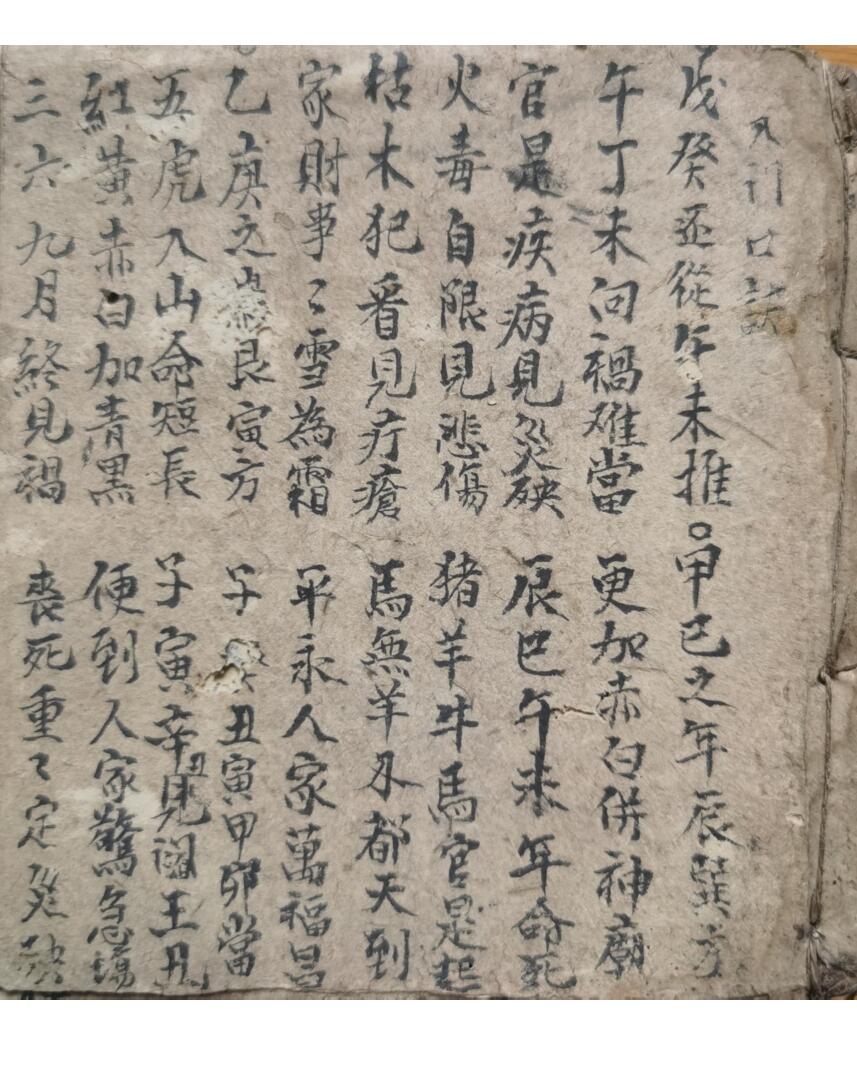 又刊口訣
戊癸丕從午未推○甲巳之年辰巽方
午丁未问禍难當 更加赤白併神廟
官是疾病見災殃 辰巴午未年命死
火毒自限見悲傷 猪羊牛馬官是起
枯木犯着見疔瘡 馬無羊外都天到
家財事〻雪為霜 平永人家萬福昌
乙庚之歲艮寅方 子 丑寅甲卯當
五虎入山命短長 子寅辛丑見阎王
紅黃赤白加青黑 便到人家驚急
三六九月終見禍 喪死重〻定災